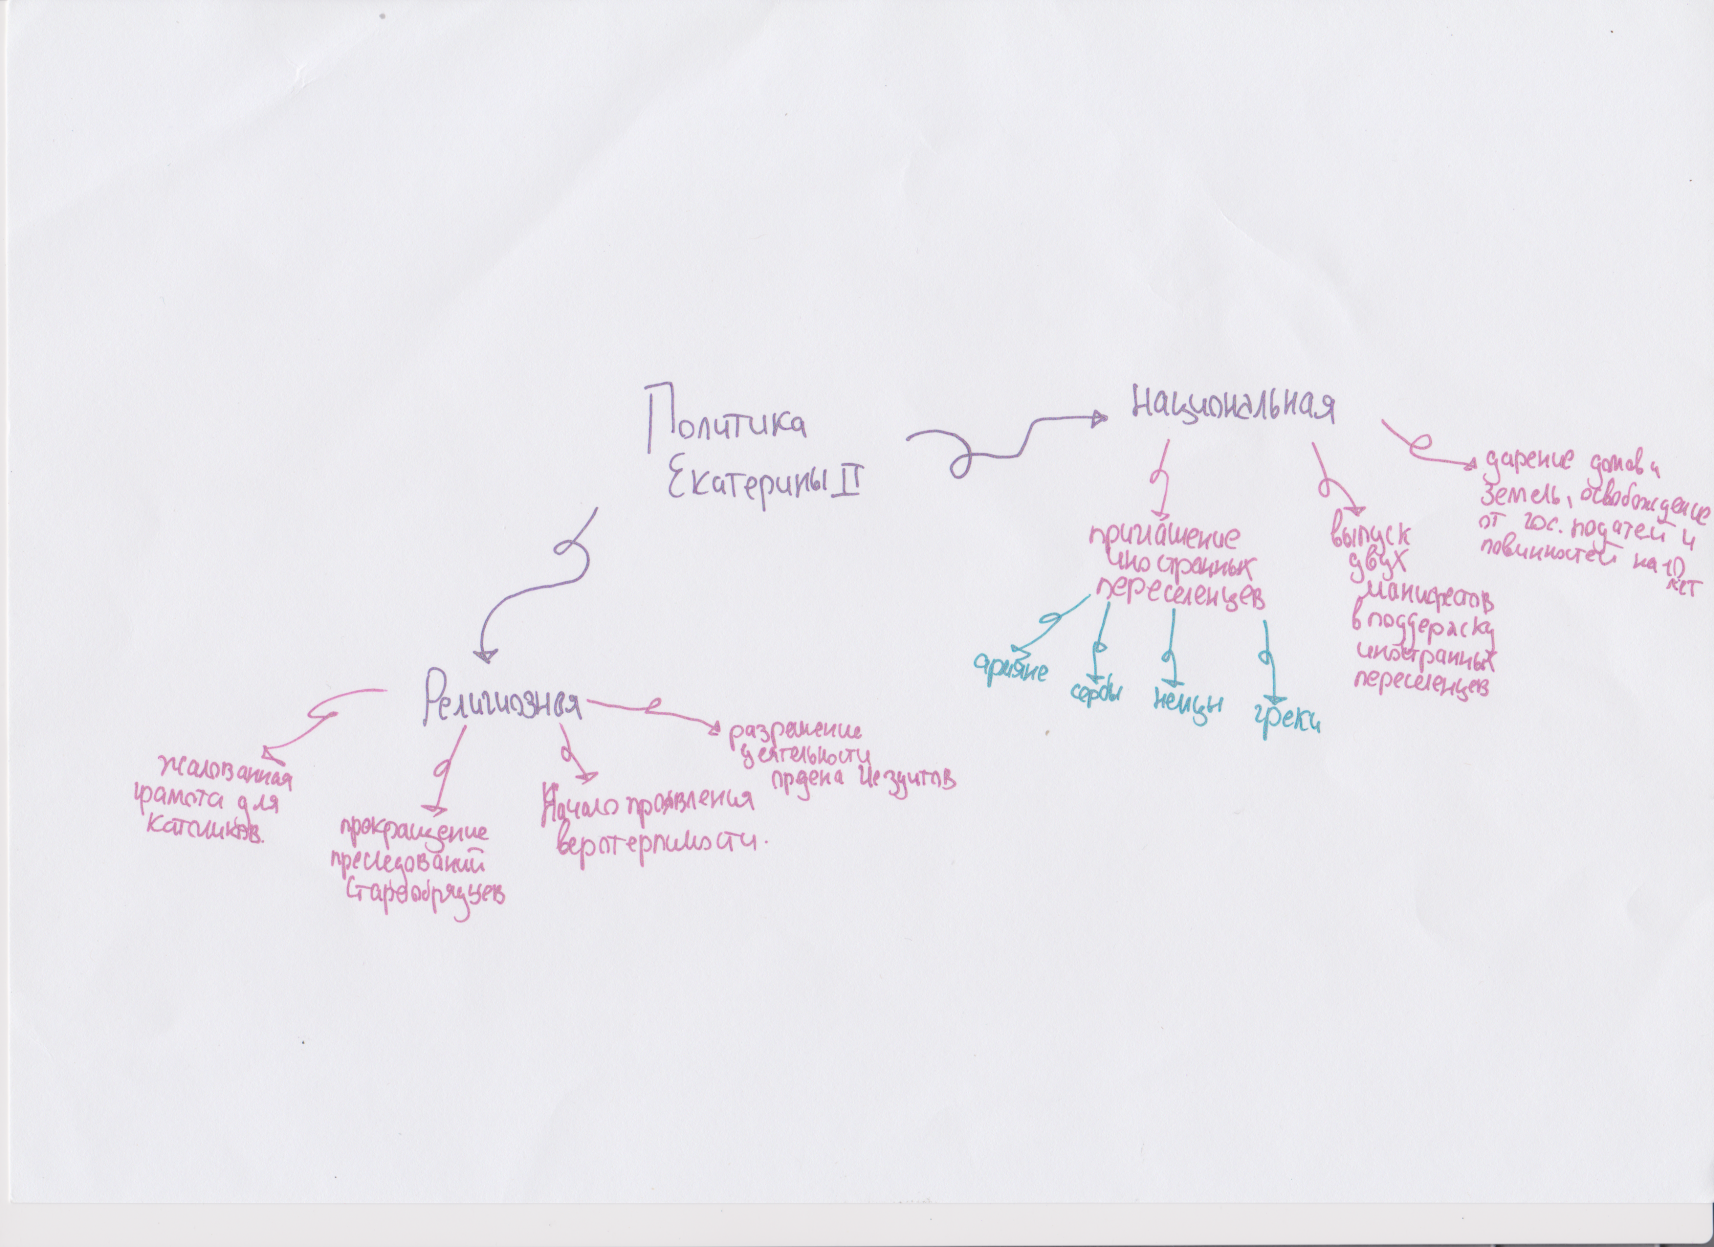 Политика
Екатерины II
Национальная
приглашение
иностранных
переселенцев
арияне
сербы
немцы
греки
выпуск
двух
манифестов
в поддержку
иностранных
переселенцев
дарение домов и
земель, освобождение
от гос. податей и
повинностей на 10
лет
Религиозная
жалованная
грамота для
католиков.
прокращение
преследований
Старообрядцев
Начало проявления
веротерпимости.
разрешение
деятельности
ордена Иезуитов